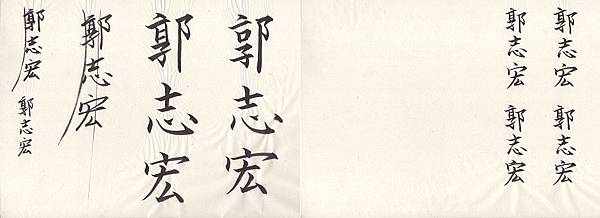 郭志宏
郭志宏
郭志宏
郭志宏
郭志宏
郭志宏
郭志宏
郭志宏
郭志宏